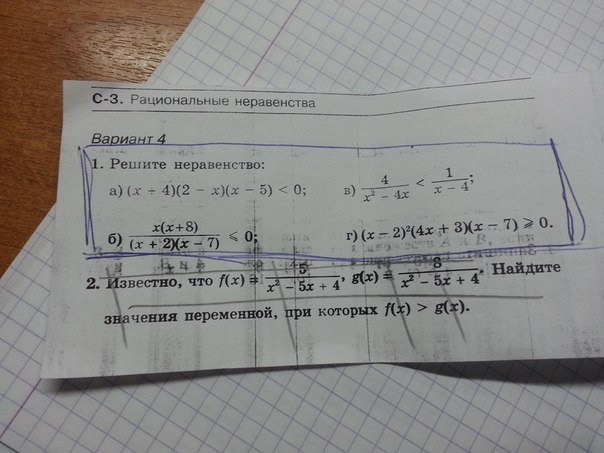 С-3. Рациональные неравенства
Вариант 4
1. Решите неравенство:
а) (x + 4)(2 − x)(x − 5) < 0;
в) 4/(x² − 4x) < 1/(x − 4);
б) x(x+8)/((x + 2)(x − 7)) ⩽ 0;
г) (x − 2)²(4x + 3)(x − 7) ⩾ 0.
2. Известно, что f(x) = 5/(x² − 5x + 4), g(x) = 8/(x² − 5x + 4). Найдите
значения переменной, при которых f(x) > g(x).